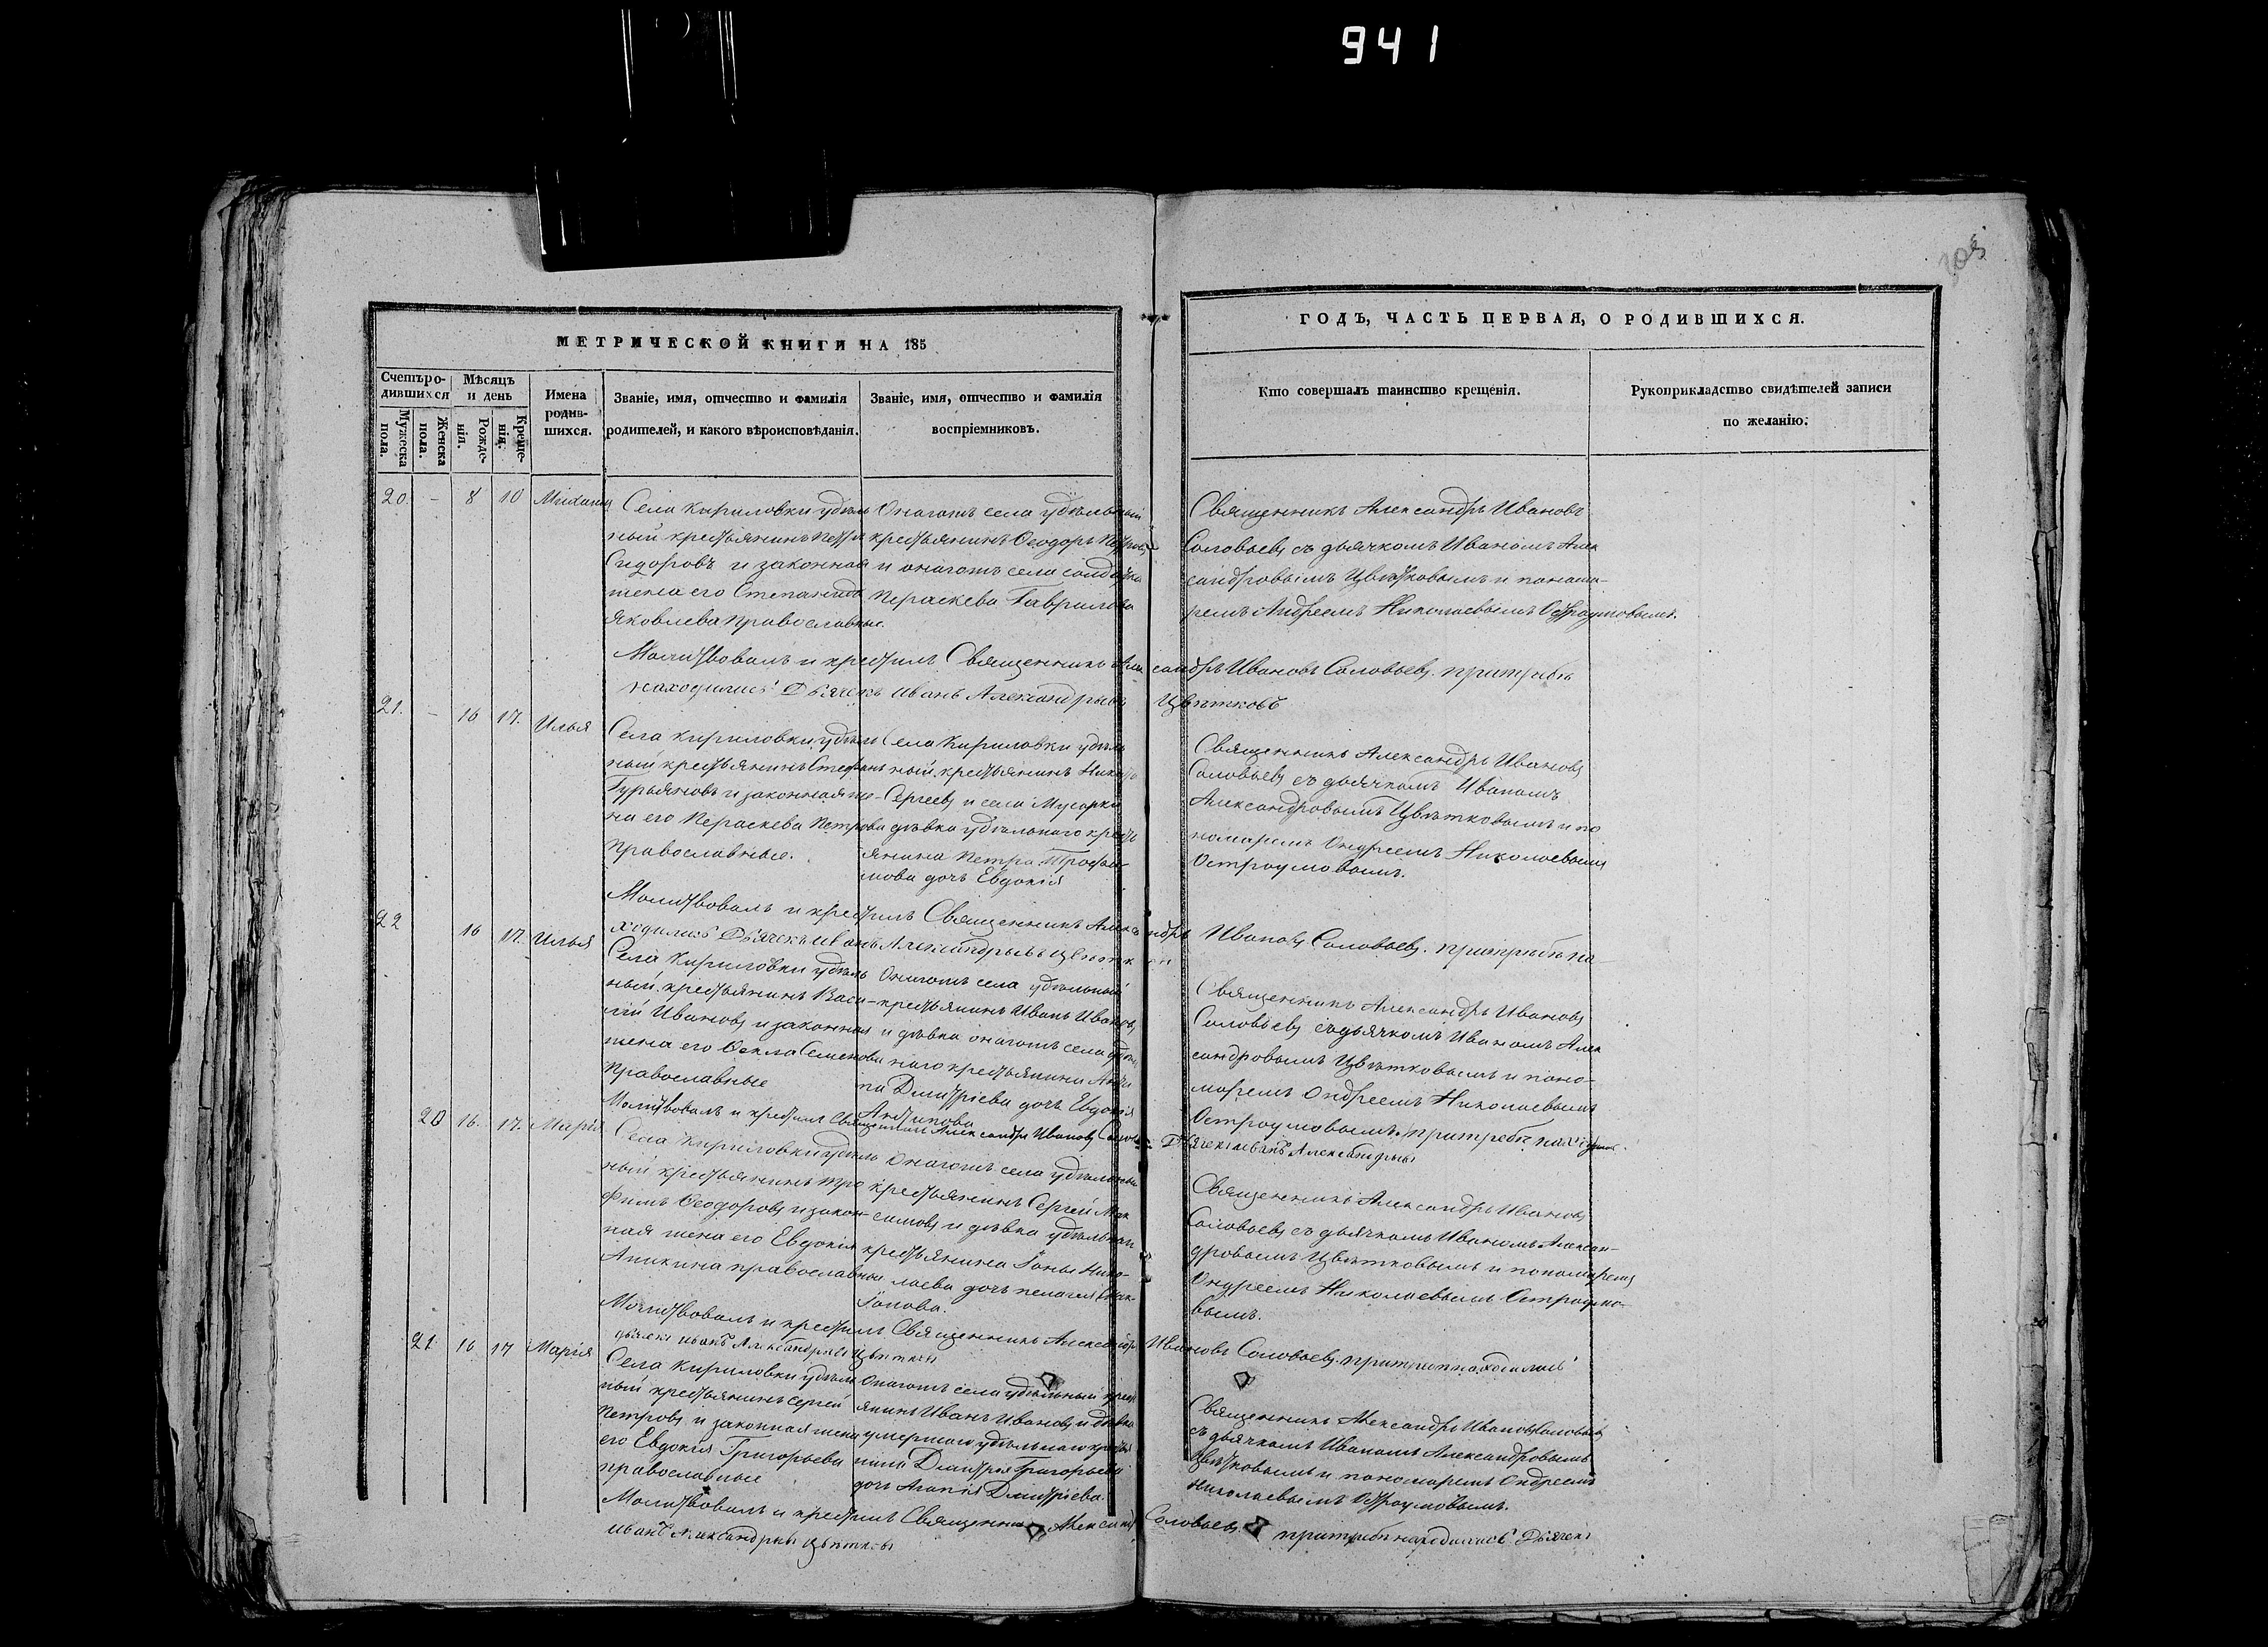 941
205
МЕТРИЧЕСКОЙ КНИГИ НА 185
Счетъ родившихся
Мужеска пола.
Женска пола.
Мѣсяцъ и день
Рожденія.
Крещенія.
Имена родившихся.
Званіе, имя, отчество и фамилія
родителей, и какого вѣроисповѣданія.
Званіе, имя, отчество и фамилія
воспріемниковъ.
ГОДЪ, ЧАСТЬ ПЕРВАЯ, О РОДИВШИХСЯ.
Кто совершалъ таинство крещенія.
Рукоприкладство свидѣтелей записи
по желанію.
20. - 8 10
Села Кириловки удѣль
ный крестьянинъ Петръ
Сидоровъ и законная
жена его Степанида
Яковлева православные.
Онагожъ села удѣльный
крестьянинъ Ѳеодоръ Петровъ
и онагожъ села солдатка
Пераскева Гаврилова
Священникъ Александръ Ивановъ
Соловьевъ съ дьячкомъ Иваномъ Алек
сандровымъ Цвѣтковымъ и понома-
ремъ Андреемъ Николаевымъ Остроумовымъ.
Молитвовалъ и крестилъ Священникъ Александръ Ивановъ Соловьевъ. при
находились Дьячекъ Иванъ Александрывъ Цвѣтковъ
21. - 16 17. Илья
Села Кириловки удѣль
ный крестьянинъ Стефанъ
Гурьяновъ и законная же-
на его Пераскева Петрова
православные.
Села Кириловки удѣль
ный крестьянинъ
Сергеевъ и села Мусорки
дѣвка удѣльнаго кресть
янина Петра Трофи-
мова дочь Евдокія
Священникъ Александръ Ивановъ
Соловьевъ съ дьячкомъ Иваномъ
Александровымъ Цвѣтковымъ и по
номаремъ Ондреемъ Николаевымъ
Остроумовымъ.
Молитвовалъ и крестилъ Священникъ Александръ Ивановъ Соловьевъ. при на
ходились Дьячекъ Иванъ Александрывъ Цвѣтковъ
22 16 17. Илья
Села Кириловки удѣль
ный крестьянинъ Васи-
лій Ивановъ и законная
жена его Ѳекла Семенова
православные
Онагожъ села удѣльный
крестьянинъ Иванъ Ивановъ
и дѣвка онагожъ села удѣль
наго крестьянина Анти
па Дмитріева дочь Евдокія
Антипова
Священникъ Александръ Ивановъ
Соловьевъ съ дьячкомъ Иваномъ Алек
сандровымъ Цвѣтковымъ и поно-
маремъ Ондреемъ Николаевымъ
Остроумовымъ.
Молитвовалъ и крестилъ Священникъ Александръ Ивановъ
Дьячекъ Иванъ Александрывъ
20 16. 17. Марія
Села Кириловки удѣль
ный крестьянинъ Тро
фимъ Ѳеодоровъ и закон-
ная жена его Евдокія
Аникина православные
Онагожъ села удѣльный
крестьянинъ Сергей Мак
симовъ и дѣвка удѣльнаго
крестьянина Іоны Нико-
лаева дочь Пелагея
Іонова.
Священникъ Александръ Ивановъ
Соловьевъ съ дьячкомъ Иваномъ Алексан-
дровымъ Цвѣтковымъ и пономаремъ
Ондреемъ Николаевымъ Остроумо-
вымъ.
Молитвовалъ и крестилъ Священникъ Александръ Ивановъ Соловьевъ. при находились
дьячекъ Иванъ Александрывъ Цвѣтковъ
21. 16 17 Марія
Села Кириловки удѣль
ный крестьянинъ Сергей
Петровъ и законная жена
его Евдокія Григорьева
православные
Онагожъ села удѣльный крест
янинъ Иванъ Ивановъ и дѣвка
умершаго удѣльнаго кресть
нина Дмитрія Григорьева
дочь Агапія Дмитріева.
Священникъ Александръ Ивановъ Соловьевъ
съ дьячкомъ Иваномъ Александровымъ
Цвѣтковымъ и пономаремъ Ондреемъ
Николаевымъ Остроумовымъ.
Молитвовалъ и крестилъ Священникъ Александръ Соловьевъ находились Дьячекъ
Иванъ Александрывъ Цвѣтковъ